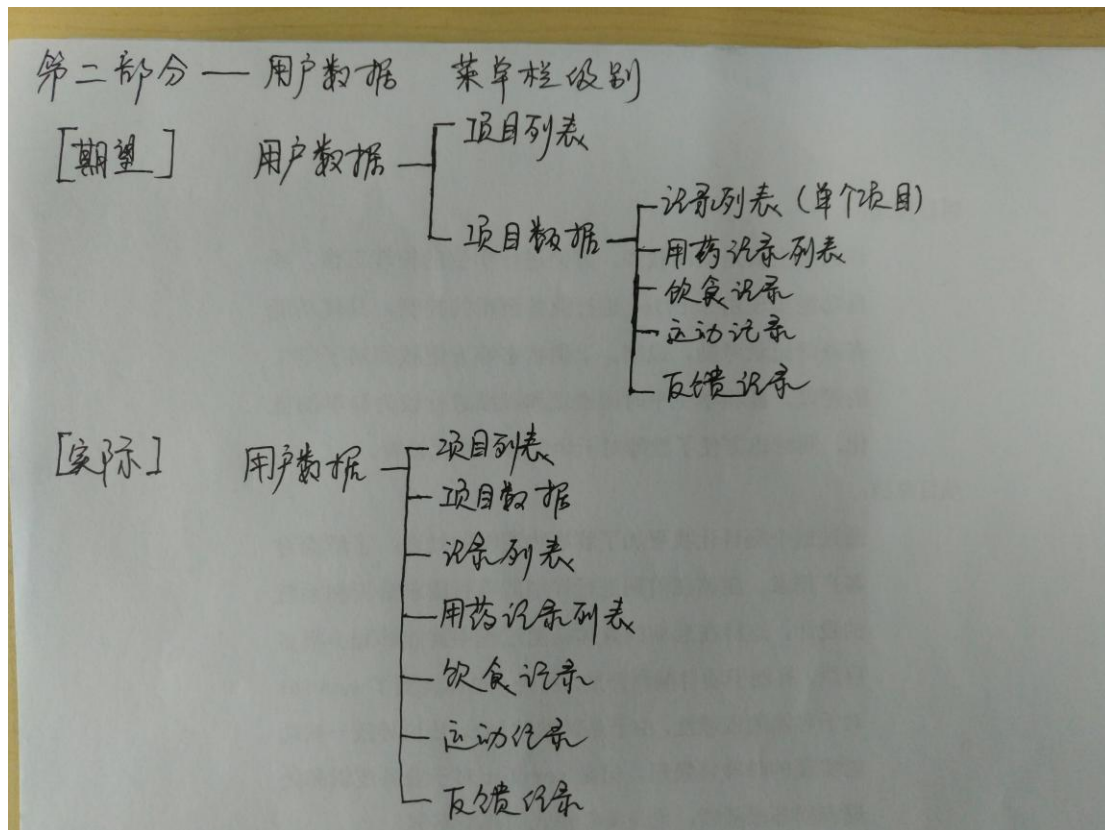 第二部分 — 用户数据 菜单栏级别
[期望] 用户数据
项目列表
项目数据
记录列表(单个项目)
用药记录列表
饮食记录
运动记录
反馈记录
[实际] 用户数据
项目列表
项目数据
记录列表
用药记录列表
饮食记录
运动记录
反馈记录